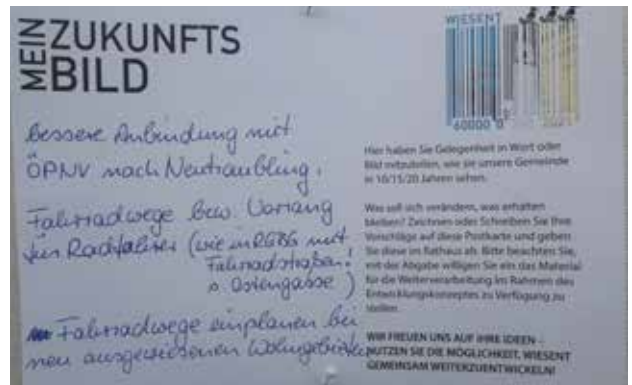 MEIN ZUKUNFTS
BILD
bessere Anbindung mit
ÖPNV nach Neutraubling,
Fahrradwege bzw. Vorrang
für Radfahrer (wie in RGBG mit
Fahrradstraßen!
s. Ostengasse)
Fahrradwege einplanen bei
neu ausgewiesenen Wohngebieten
WIESENT
60000 0
Hier haben Sie Gelegenheit in Wort oder
Bild mitzuteilen, wie sie unsere Gemeinde
in 10/15/20 Jahren sehen.
Was soll sich verändern, was erhalten
bleiben? Zeichnen oder Schreiben Sie Ihre
Vorschläge auf diese Postkarte und geben
Sie diese im Rathaus ab. Bitte beachten Sie,
mit der Abgabe willigen Sie ein das Material
für die Weiterverarbeitung im Rahmen des
Entwicklungskonzeptes zu Verfügung zu
stellen.
WIR FREUEN UNS AUF IHRE IDEEN –
NUTZEN SIE DIE MÖGLICHKEIT, WIESENT
GEMEINSAM WEITERZUENTWICKELN!